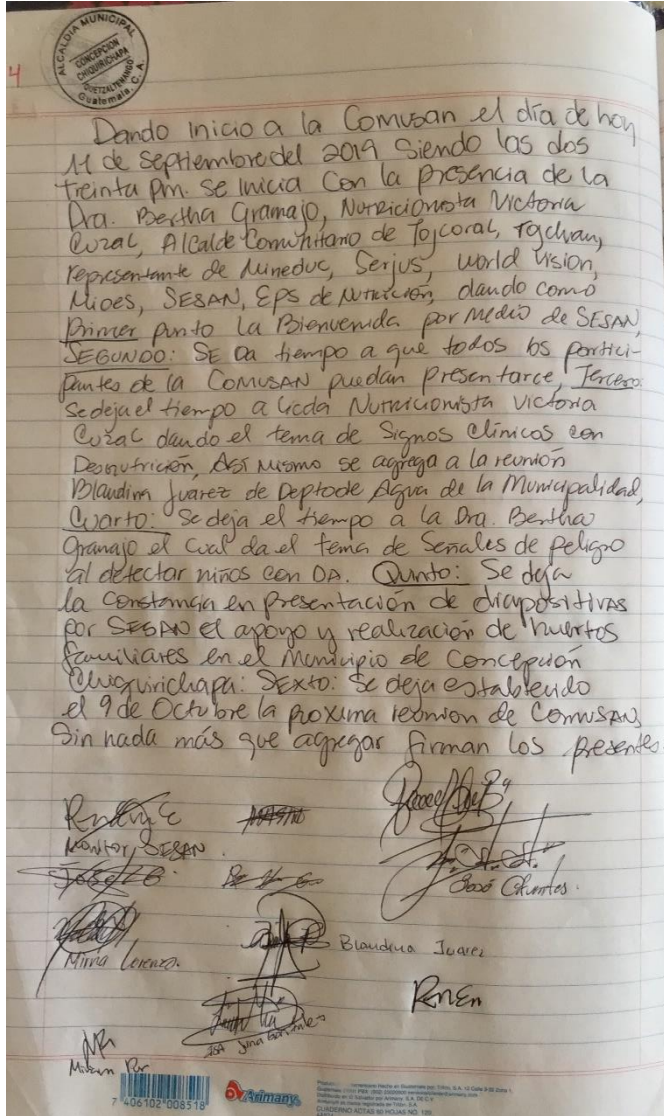 ALCALDIA MUNICIPAL
CONCEPCION
CHIQUIRICHAPA
QUETZALTENANGO
Guatemala, C. A.
4
Dando inicio a la Comusan el día de hoy
11 de Septiembre del 2019 Siendo las dos
treinta pm. se inicia Con la presencia de la
Dra. Bertha Gramajo, Nutricionista Victoria
Cuzal, Alcalde Comunitario de Tojcoral,
representante de Mineduc, Serjus, world vision,
Mides, SESAN, Eps de Nutrición, dando como
Primer punto la Bienvenida por medio de SESAN,
SEGUNDO: SE Da tiempo a que todos los partici-
pantes de la COMUSAN puedan Presentarce, Tercero:
Se deja el tiempo a Licda Nutricionista Victoria
Cuzal dando el tema de Signos Clínicos con
Desnutrición, Así Mismo se agrega a la reunión
Blaudina Juarez de Depto de Agua de la Municipalidad,
Cuarto: Se deja el tiempo a la Dra. Bertha
Gramajo el cual da el tema de Señales de peligro
al detectar niños con DA. Quinto: Se deja
la Constancia en Presentación de diapositivas
por SESAN el apoyo y realización de huertos
familiares en el Municipio de Concepción
Chiquirichapa: SEXTO: Se deja establecido
el 9 de Octubre la proxima reunion de Comusan,
Sin nada más que agregar firman los presentes.
Monitor, SESAN
José Cifuentes.
Mirna Lorenzo.
Blaudina Juarez
7 406102 008518
Arimany
CUADERNO ACTAS 80 HOJAS NO. 100